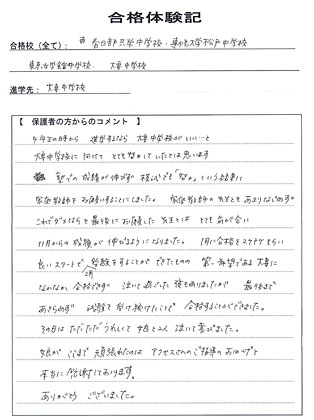 合格体験記
合格校(全て): 春日部共栄中学校・専修大学松戸中学校
東京家政学院中学校、大妻中学校
進学先: 大妻中学校
【 保護者の方からのコメント 】
4年生の時から 進学するなら 大妻中学校がいい…と
大妻中学校に向けて とても努力していたとは思います
塾での成績が伸びず 模試でも「努力」という結果に
家庭教師を お願いすることにしました。 家庭教師の先生ともあまりなじめず
これでダメならと最後にお願した先生とは とても気が合い
11月からの成績が伸びるようになりました。 1月に合格を
良いスタートで 2月 受験をすることができたものの 第一希望である大妻に
なかなか合格できず 泣いて過ごした夜もありましたが 最後まで
あきらめず 試験を受け続けたことで 合格することができました。
その日は ただただうれしくて 娘と二人 泣いて喜びました。
娘が ここまで 頑張れたのは アクセスさんのご指導のおかげと
本当に感謝しております。
ありがとう ございました。